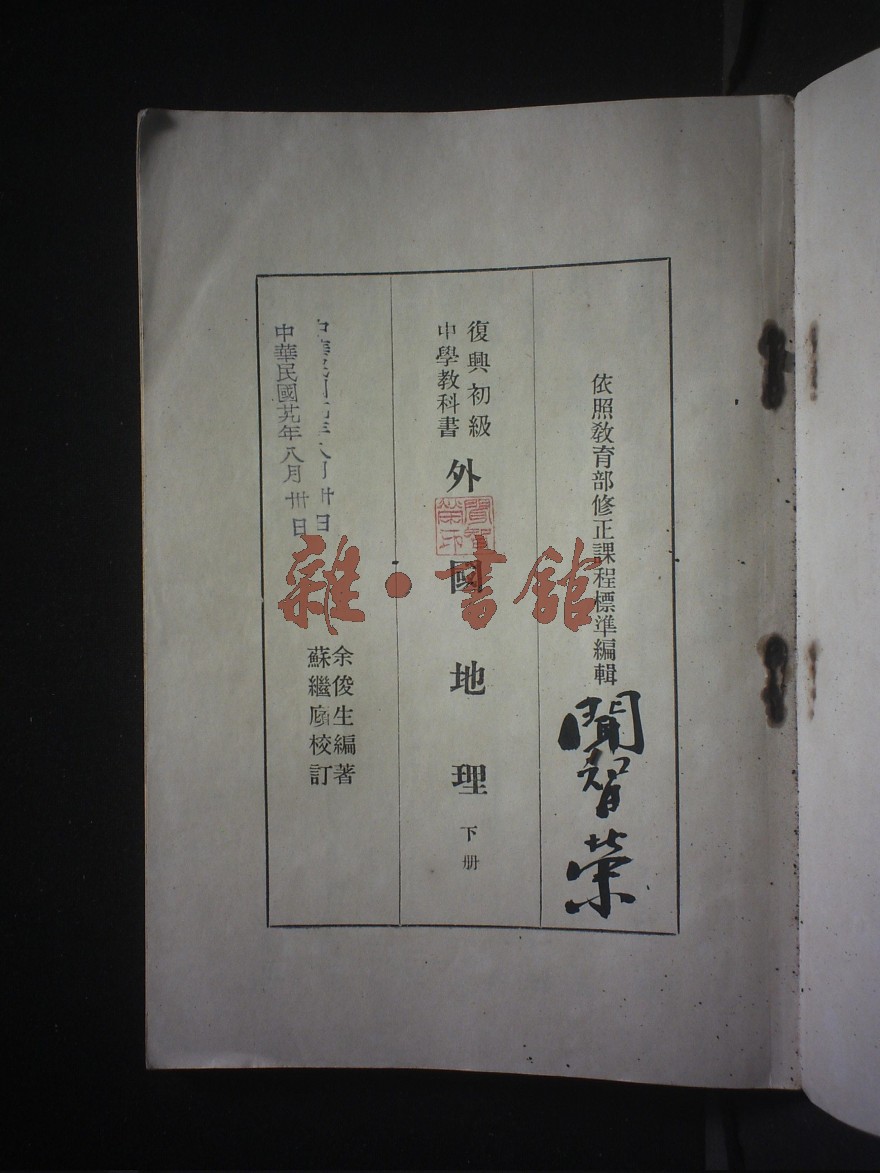 依照教育部修正課程標準編輯
聞智榮
復興初級
中學教科書
外國地理
下册
聞智榮印
余俊生編著
蘇繼廎校訂
中華民國廿九年八月卅日
中華民國廿九年八月卅日
雜·書館